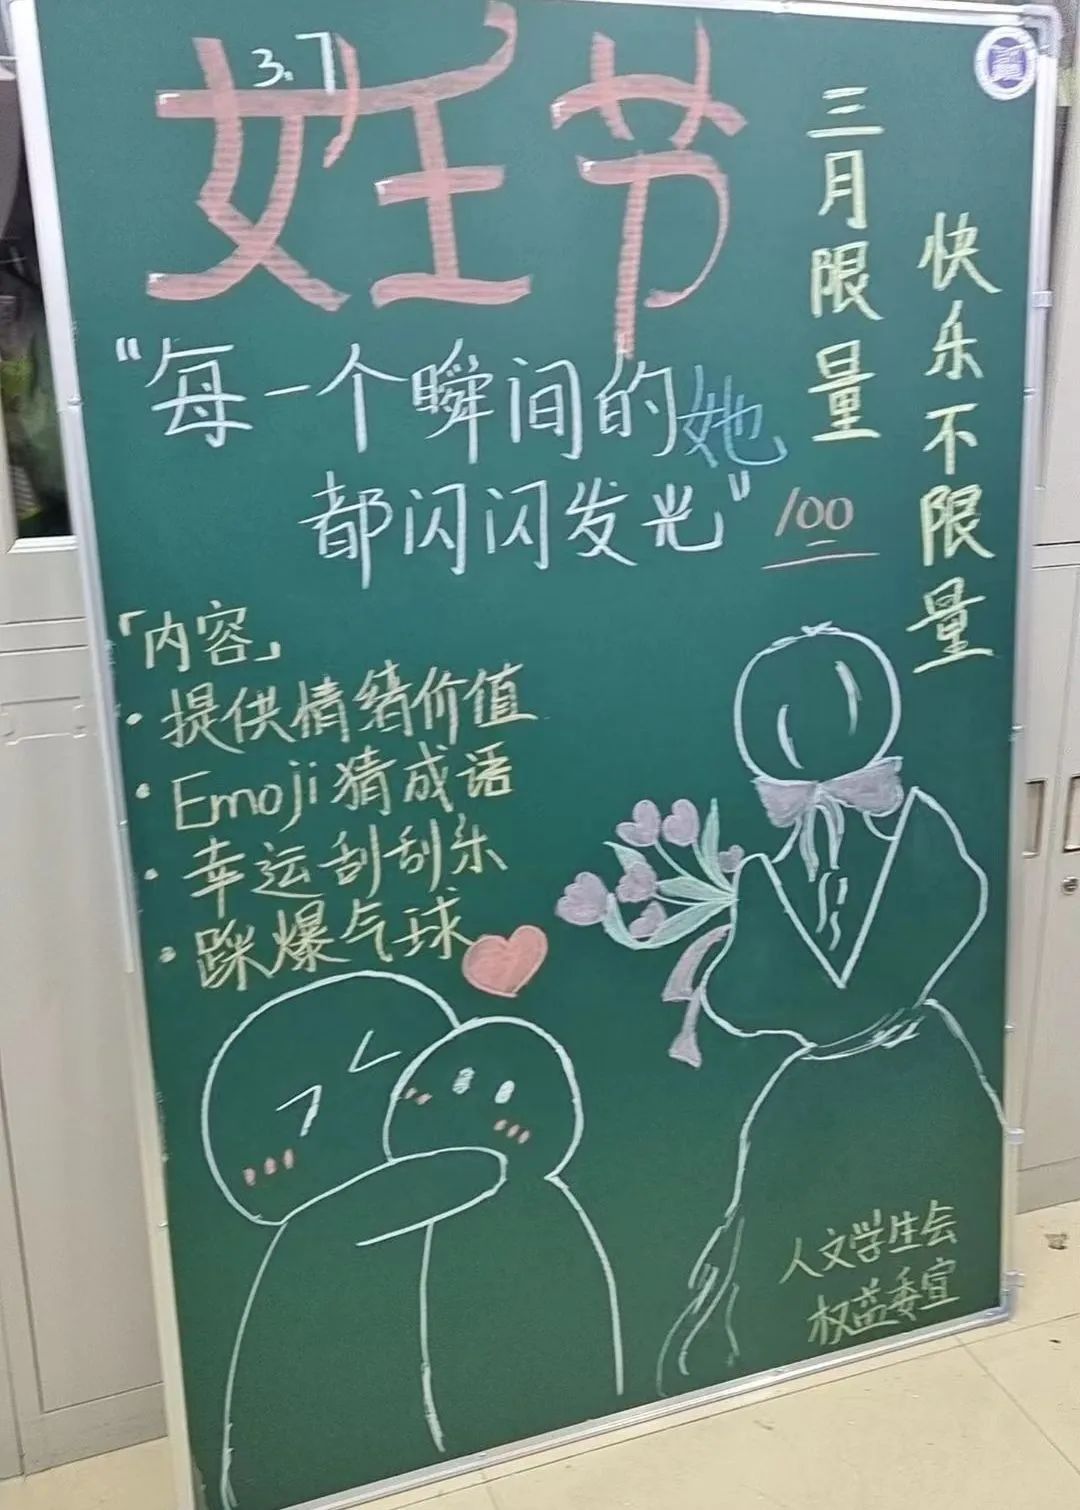 3.7
女王节
三月限量
快乐不限量
“每一个瞬间的她
都闪闪发光”
100
「内容」
· 提供情绪价值
· Emoji猜成语
· 幸运刮刮乐
· 踩爆气球
人文学生会
权益委宣